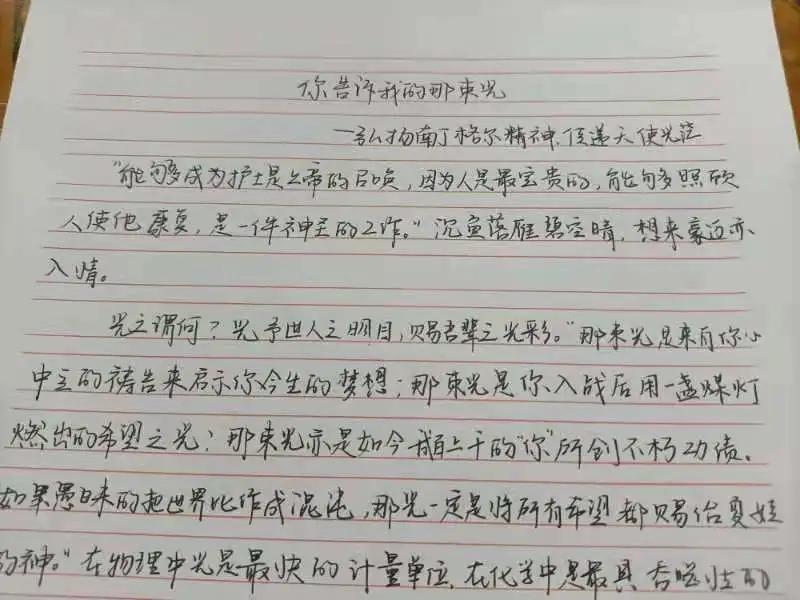 你告诉我的那束光
——弘扬南丁格尔精神,传递天使光茫
"能够成为护士是上帝的召唤,因为人是最宝贵的,能够照顾
人使他康复,是一件神圣的工作。"沉鱼落雁碧空晴,想来豪迈亦
入情。
光之谓何?光予世人之明目,赐吾辈之光彩。"那束光是来自你心
中主的祷告来启示你今生的梦想;那束光是你入战后用一盏煤灯
燃出的希望之光;那束光亦是如今成百上千的"你"所创不朽功绩。
如果愚昧的把世界比作成混沌,那光一定是将所有希望都赐给夏娃
的神。"在物理中光是最快的计量单位,在化学中是最具吞噬性的